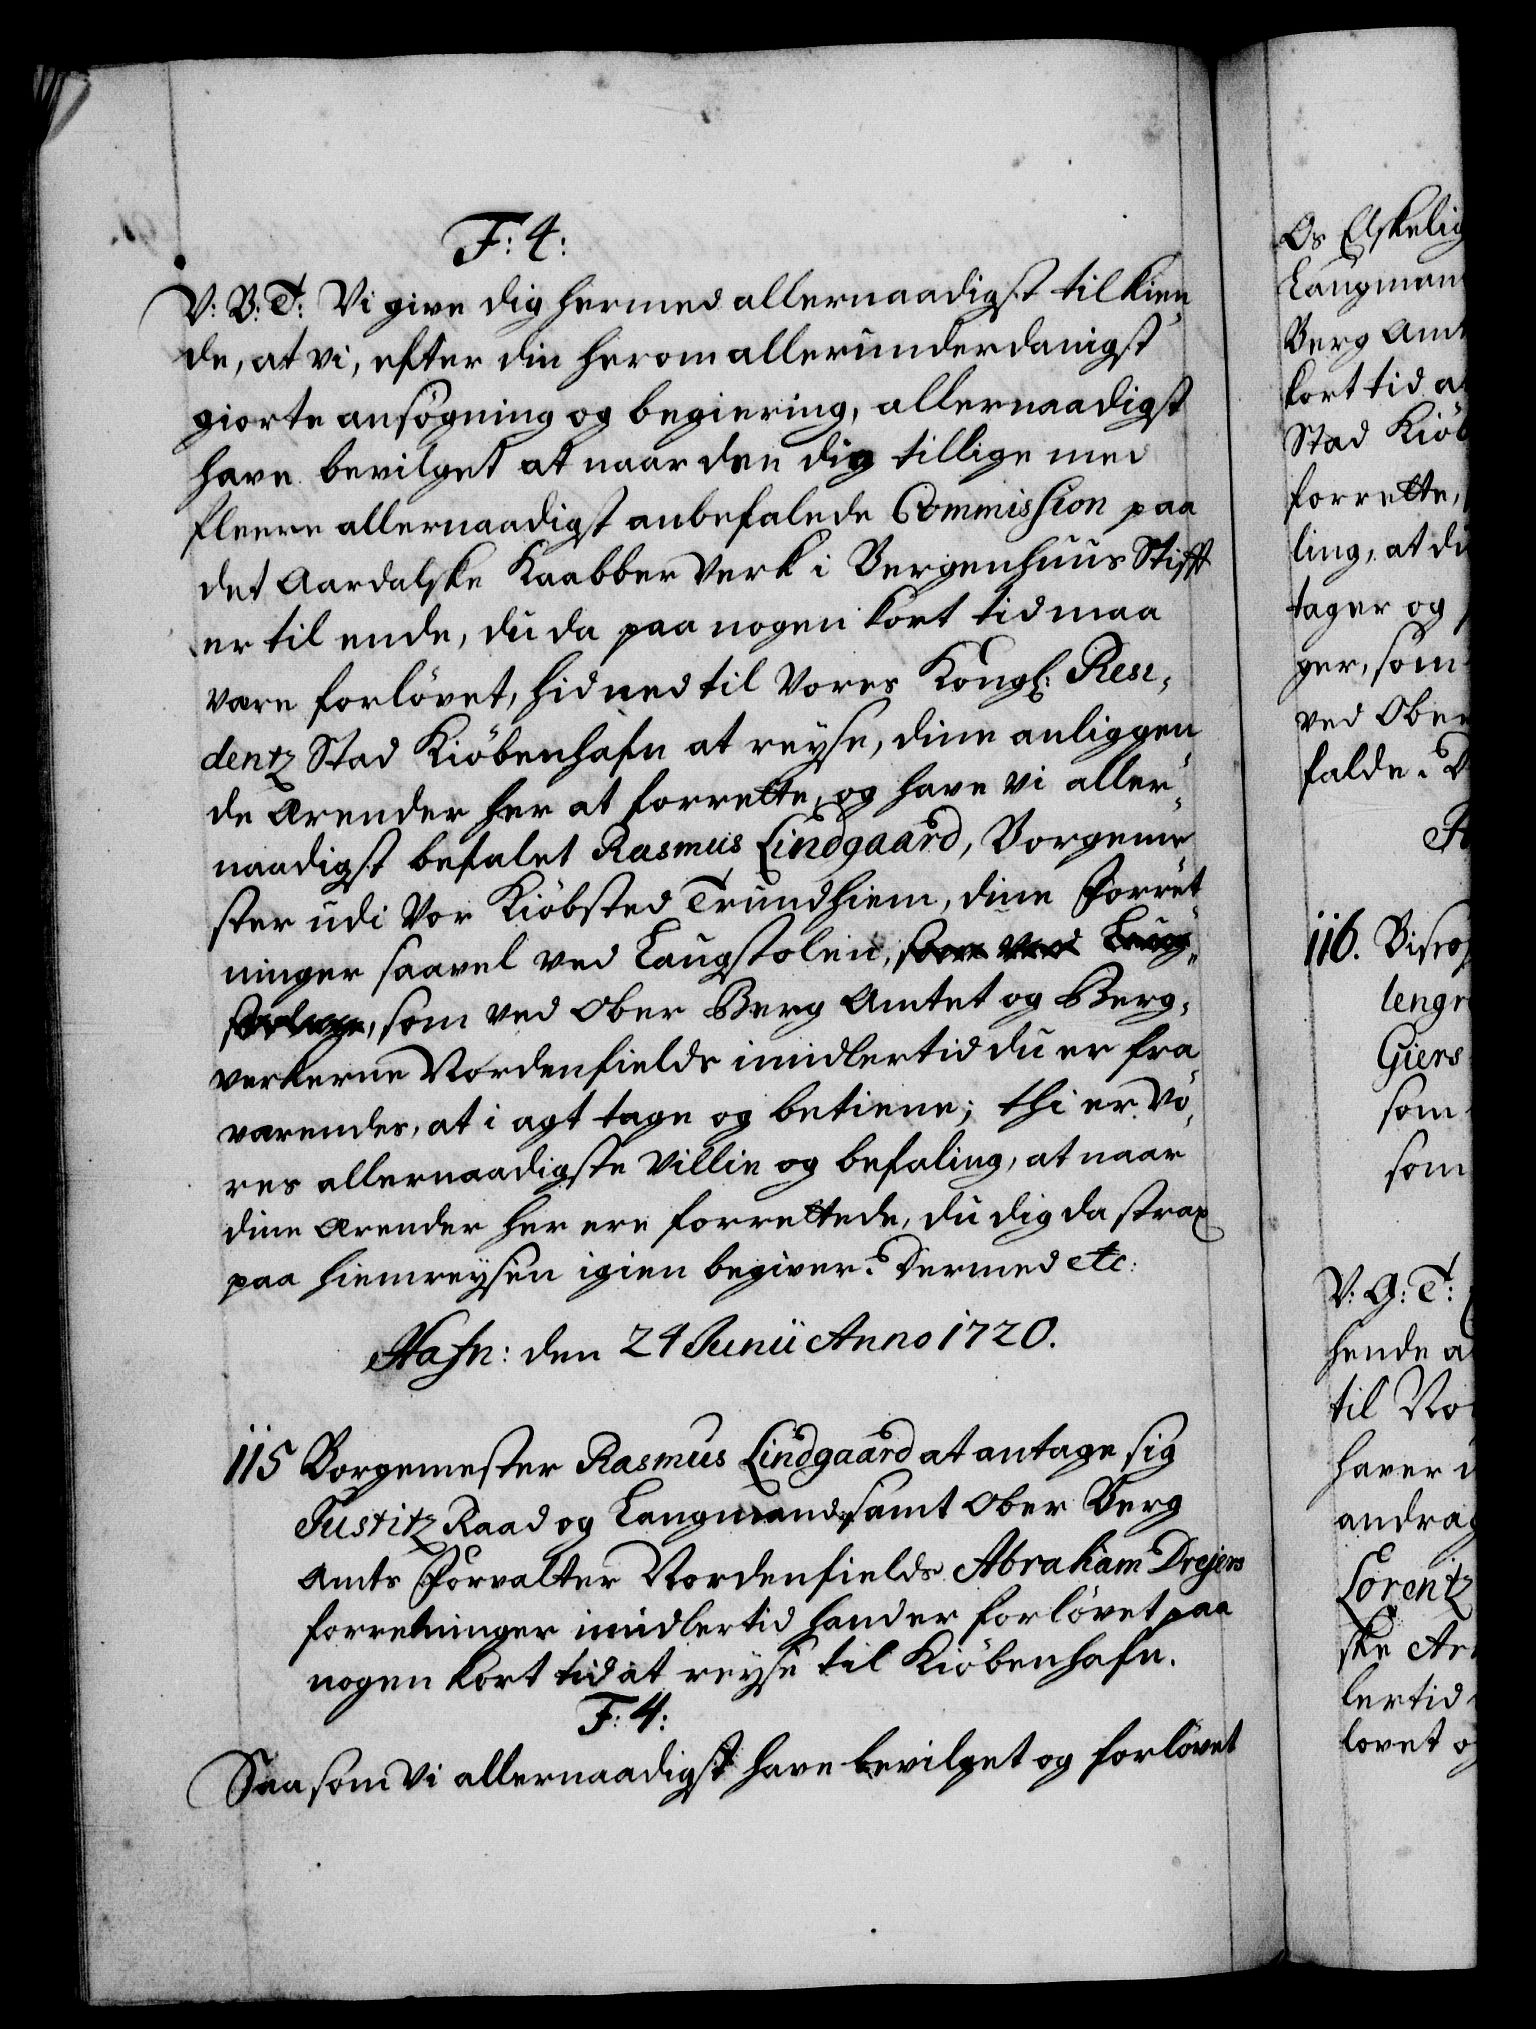 F: 4:
V: B: T: Vi give dig hermed allernaadigst tilkien„
de, at vi, efter din herom allerunderdanigst
giorte ansøgning og begiering, allernaadigst
have bevilget at naar den dig tillige med
fleere allernaadigst anbefalede Commission paa
det Aardalske Kaabber Verk i Bergenhuus Stifft
er til ende, du da paa nogen kort tid maa
være forlövet, hid ned til Vores Kongl: Resi„
dentz Stad Kiöbenhafn at reyse, dine anliggen„
de Ærender her at forrette, og have vi aller„
naadigst befalet Rasmus Lindgaard, Borgeme„
ster udi Vor Kiöbsted Trundhiem, dine Forret„
ninger saavel ved Laugstolen, som ved Laug„
stolene, som ved Ober Berg Amtet og Berg„
verkerne Nordenfields imidlertid du er fra„
værendes, at i agt tage og betiene; thi er Vo„
res allernaadigste Villie og befaling, at naar
dine Ærender her ere forrettede, du dig da strax
paa hiemreysen igien begiver. Dermed etc:
Hafn: den 24 Junii Anno 1720.
115 Borgemester Rasmus Lindgaard at antage sig
Justitz Raad og Laugmand, samt Ober Berg
Amts Forvalter Nordenfields Abraham Drejers
forretninger imidlertid hand er forlövet paa
nogen kort tid at reyse til Kiöbenhafn.
F: 4:
Saasom Vi allernaadigst have bevilget og forlövet
Os Elskelig
Laugman
Berg Amt
kort tid a
Stad Kiöb
forrette,
ling, at du
tager og
ger, som
ved Ober
falde. D
116. Bisco
lengr
Giers
som
som
V: G: T:
hende a
til No
haver i
andrag
Lorentz
ske Ar
lertid
lovet o